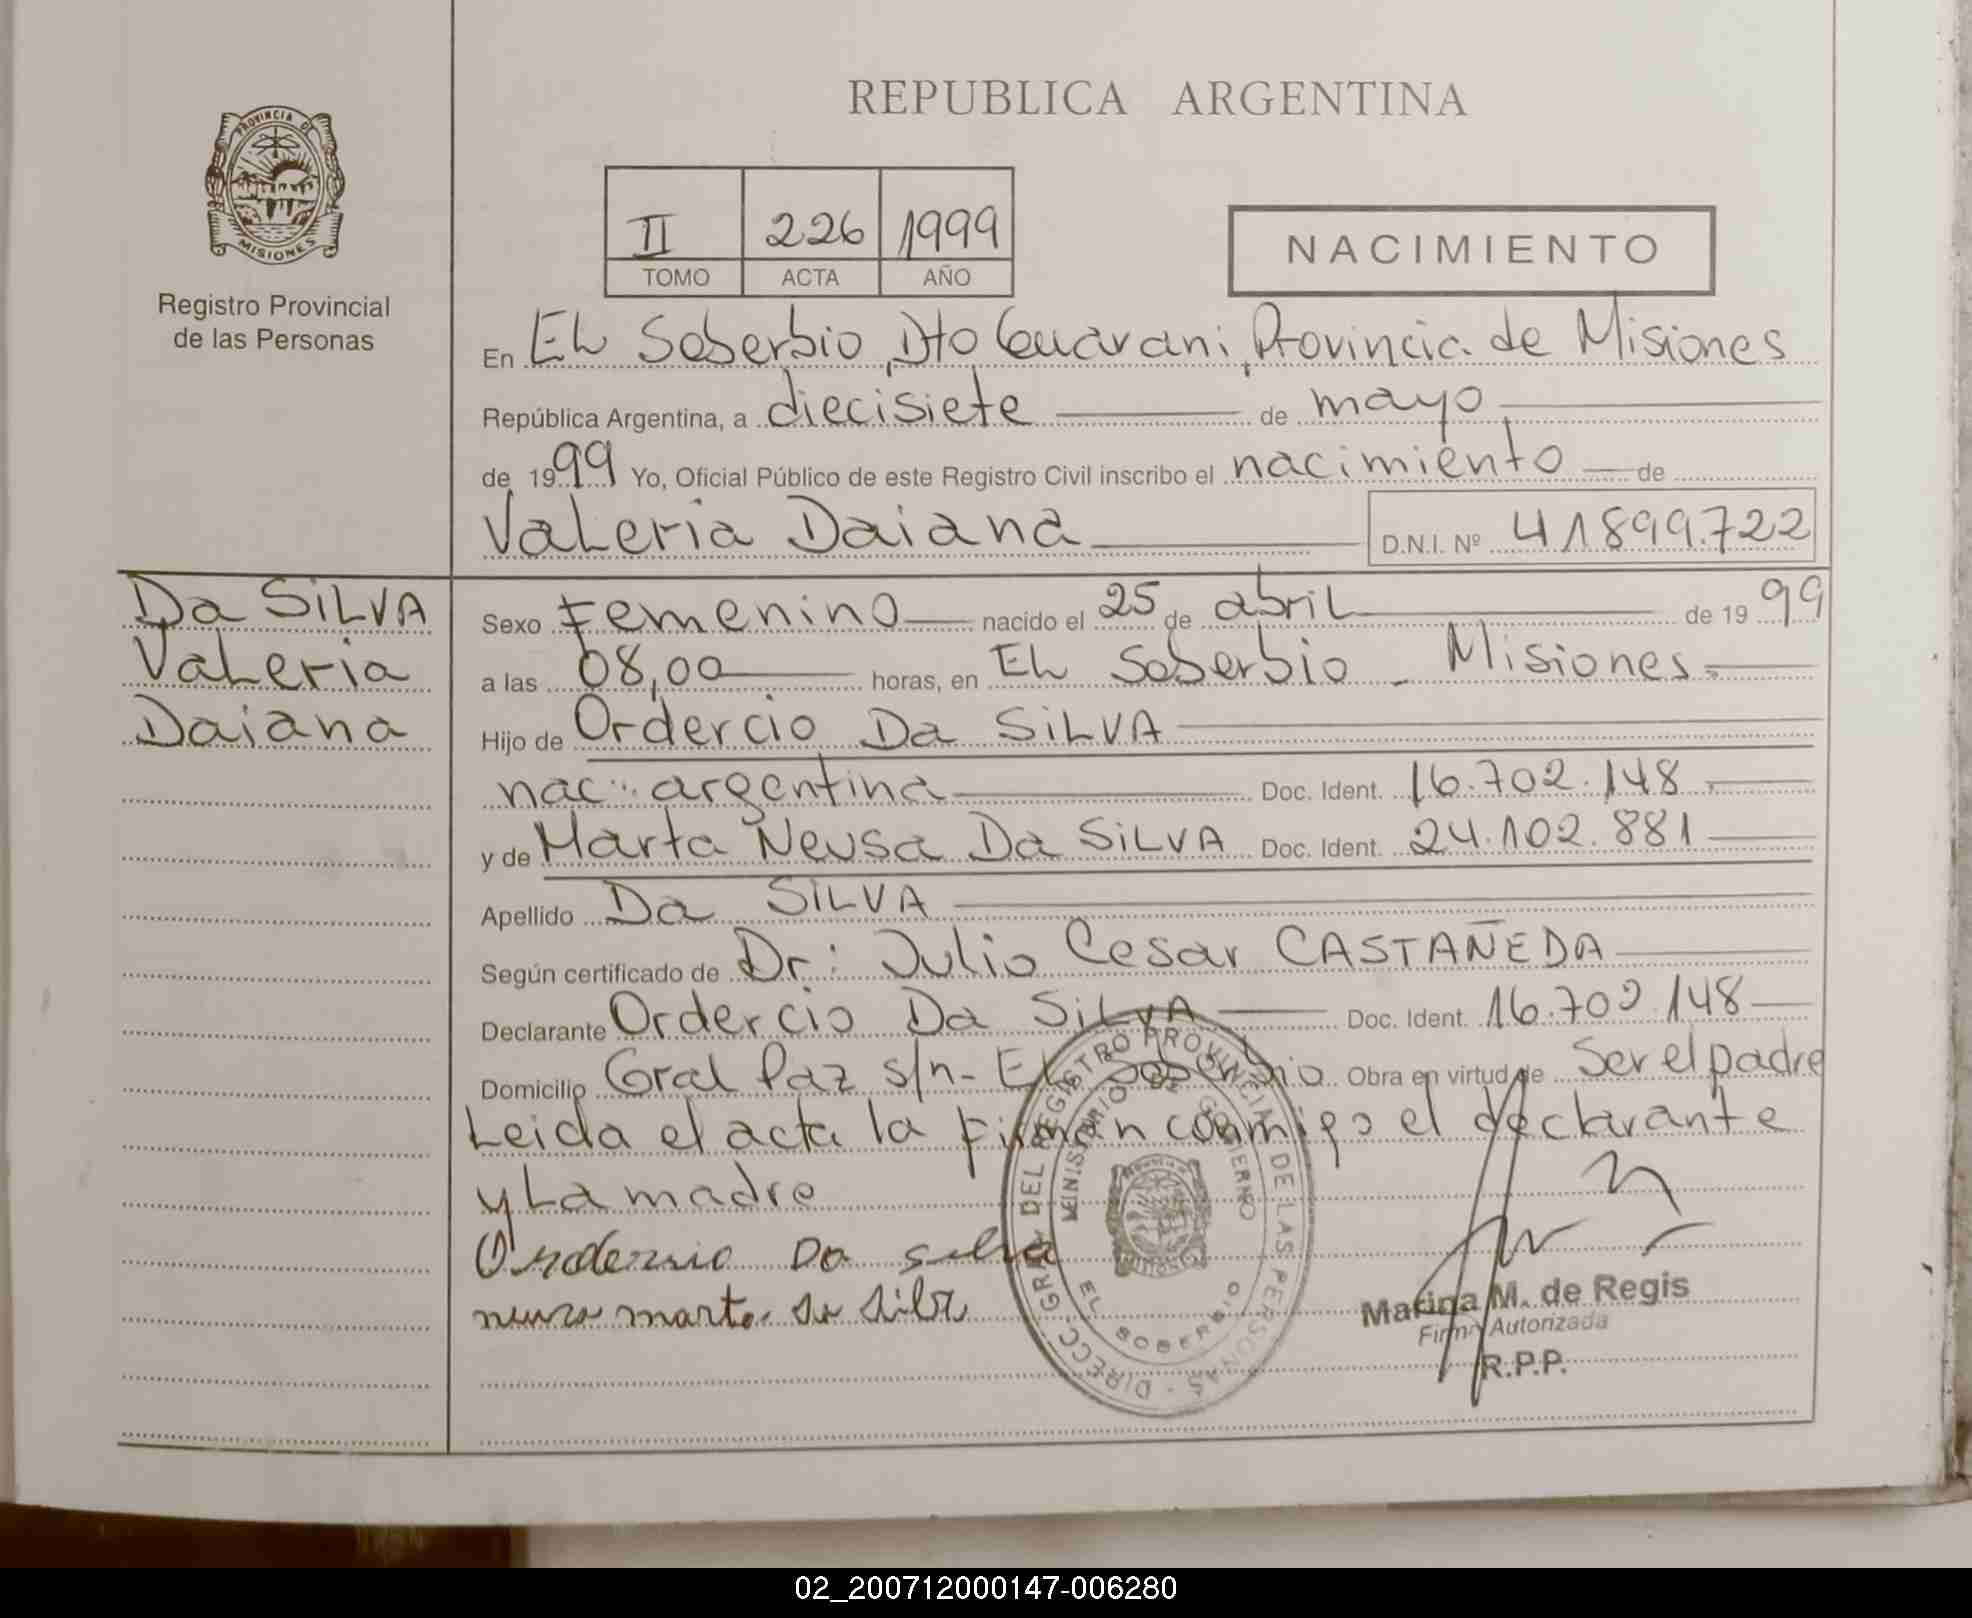 REPUBLICA ARGENTINA
PROVINCIA DE MISIONES
Registro Provincial
de las Personas
II 226 1999
TOMO ACTA AÑO
NACIMIENTO
En EL Soberbio, Dto Guarani, Provincia de Misiones
República Argentina, a diecisiete de mayo
de 1999 Yo, Oficial Público de este Registro Civil inscribo el nacimiento de
Valeria Daiana D.N.I. Nº 41899.722
Da SiLVA
Valeria
Daiana
Sexo Femenino nacido el 25 de abril de 1999
a las 08,00 horas, en EL Soberbio - Misiones.
Hijo de Ordercio Da SiLVA
nac: argentina Doc. Ident. 16.702.148
y de Marta Neusa Da SiLVA Doc. Ident. 24.102.881
Apellido Da SiLVA
Según certificado de Dr: Julio Cesar CASTAÑEDA
Declarante Ordercio Da SiLVA Doc. Ident. 16.702.148
Domicilio Gral Paz s/n - EL Soberbio Obra en virtud de Ser el padre
Leida el acta la firman conmigo el declarante
y La madre
Da silva
neusa marta da silva
DIRECC. GRAL. DEL REGISTRO PROVINCIAL DE LAS PERSONAS
MINISTERIO DE GOBIERNO
EL SOBERBIO
Marina M. de Regis
Firma Autorizada
R.P.P.
02_200712000147-006280